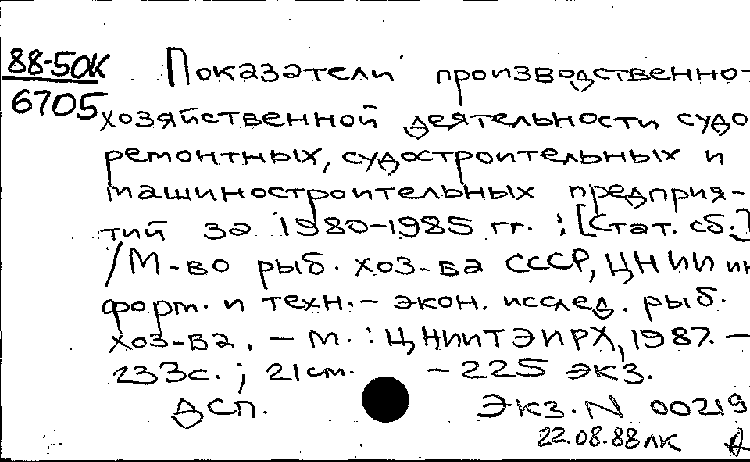 88-50К
6705
Показатели производственно-
хозяйственной деятельности судо
ремонтных, судостроительных и
машиностроительных предприя-
тий за 1980-1985 гг. : [Стат. сб.]
/М-во рыб. хоз-ва СССР, ЦНИИ ин
форм. и техн.- экон. исслед. рыб.
хоз-ва. - М. : ЦНИИТЭИРХ, 1987. -
233с. ; 21см. - 225 экз.
ДСП. Экз. N 00219
22.08.88 ЛК